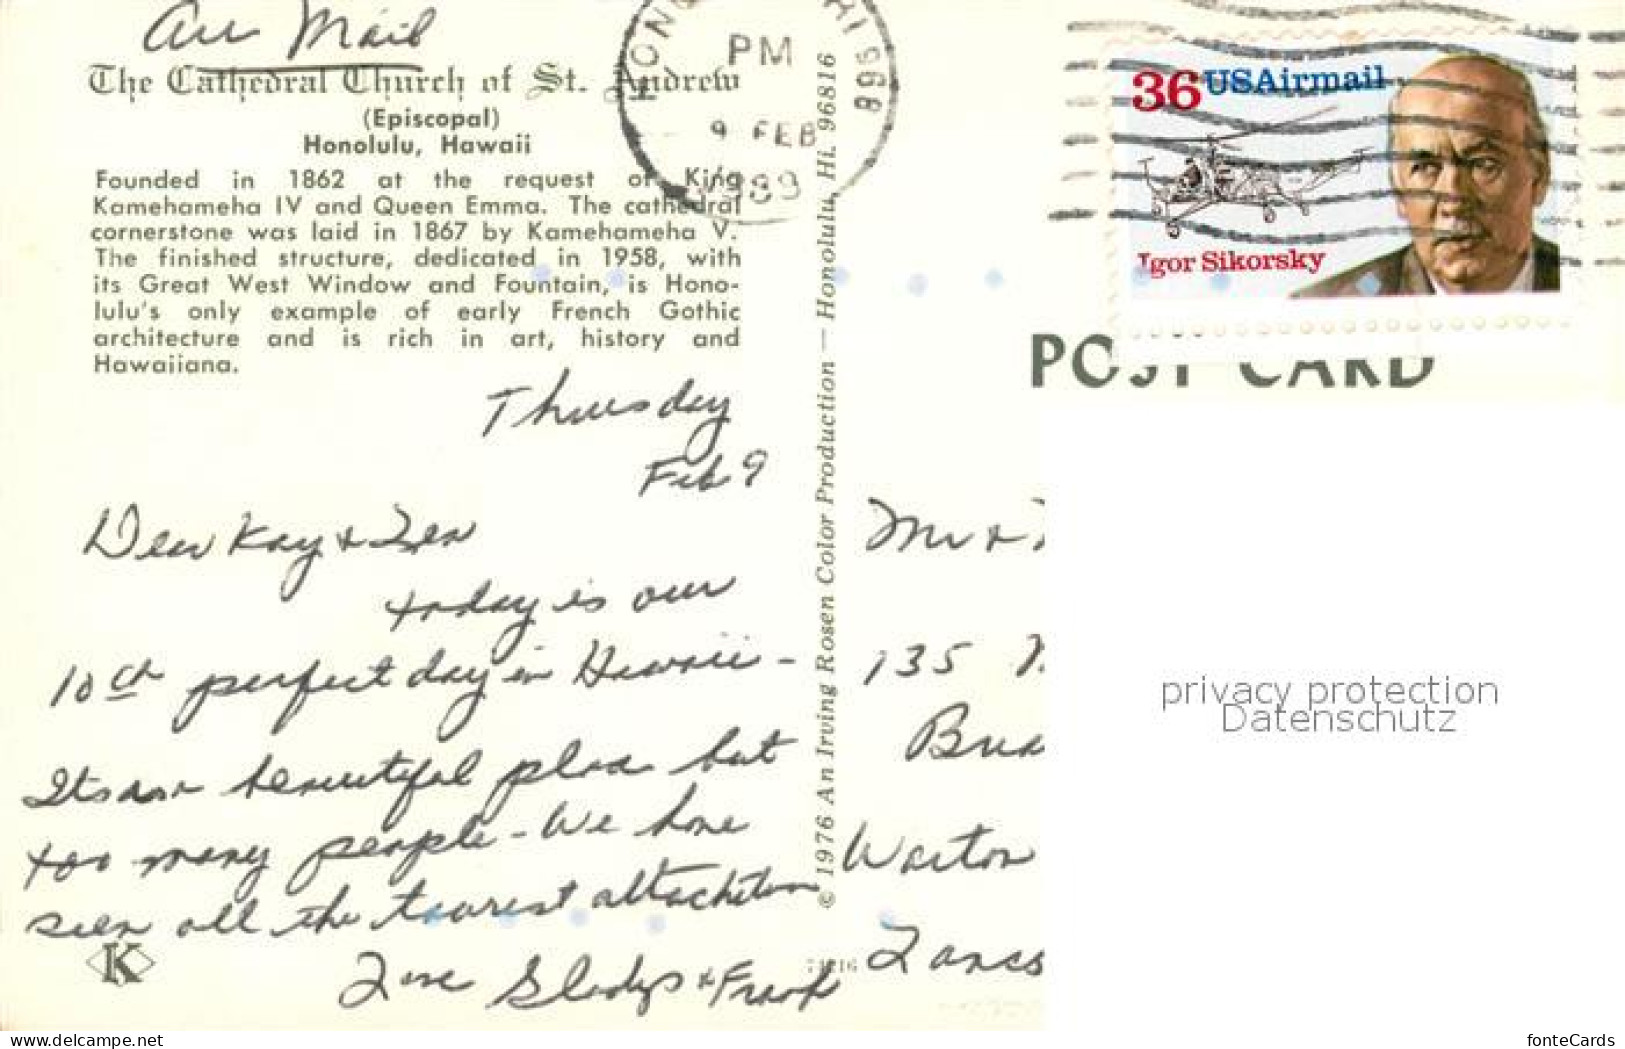 Air Mail
The Cathedral Church of St. Andrew
(Episcopal)
Honolulu, Hawaii
Founded in 1862 at the request of King
Kamehameha IV and Queen Emma. The cathedral
cornerstone was laid in 1867 by Kamehameha V.
The finished structure, dedicated in 1958, with
its Great West Window and Fountain, is Hono-
lulu's only example of early French Gothic
architecture and is rich in art, history and
Hawaiiana.
Thursday
Feb 9
Dear Kay + Len
today is our
10th perfect day in Hawaii -
beautiful place but
too many people - We have
seen all the tourest attachition
Love Gladys + Frank
K
© 1976 An Irving Rosen Color Production — Honolulu, Hi. 96816
HI 968
PM
9 FEB
36 USAirmail
Igor Sikorsky
POST CARD
Mr +
135
Warton
Lancs
privacy protection
Datenschutz
www.delcampe.net
fonteCards